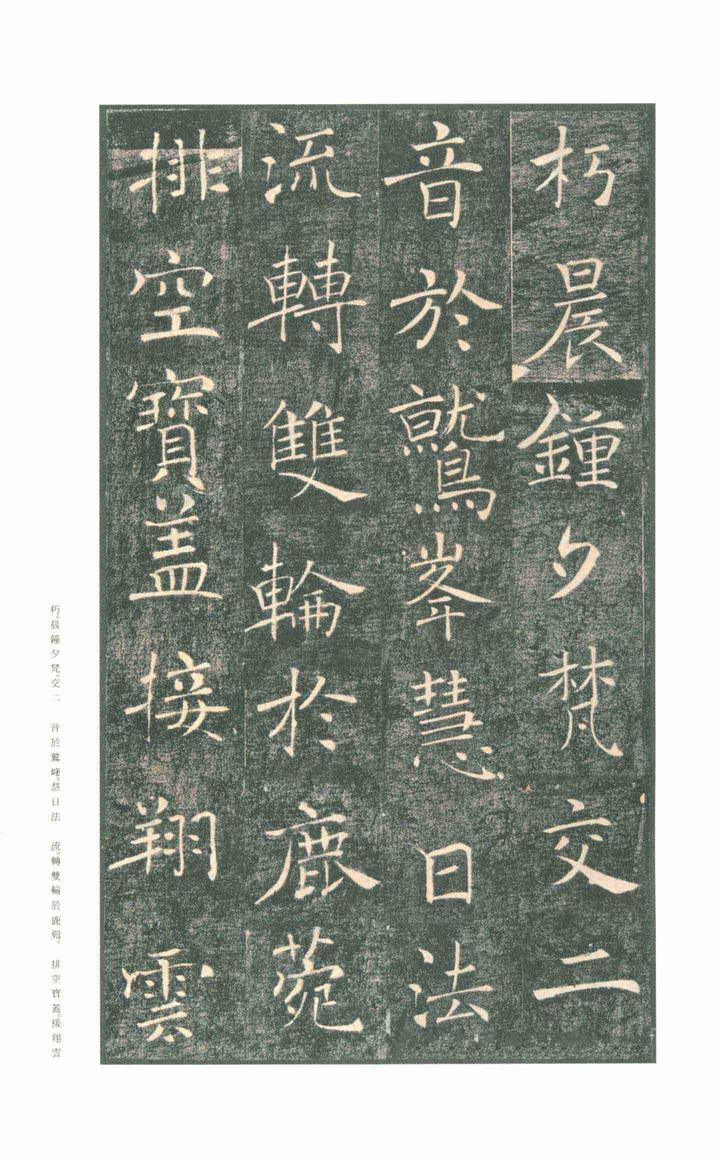 朽晨鍾夕梵交二
音於鷲峯慧日法
流轉雙輪於鹿菀
排空寶蓋接翔雲
朽。晨鐘夕梵。交二　音於鷲峰。慧日法　流。轉雙輪於鹿菀。　排空寶蓋。接翔雲